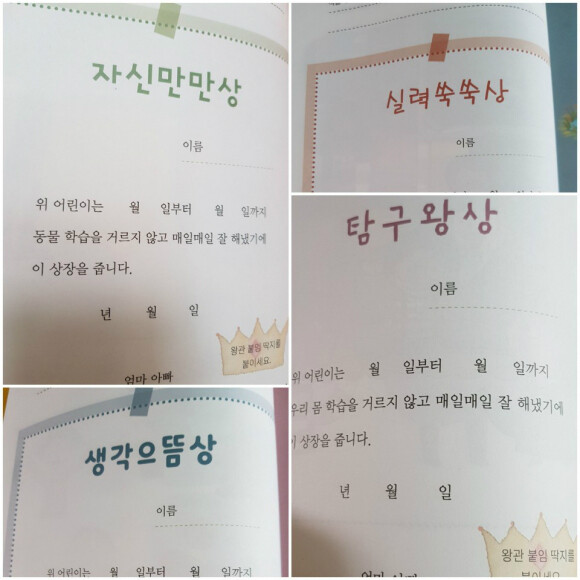 자신만만상
이름
위 어린이는 월 일부터 월 일까지
동물 학습을 거르지 않고 매일매일 잘 해냈기에
이 상장을 줍니다.
년 월 일
왕관 붙임 딱지를
붙이세요.
엄마 아빠
실력쑥쑥상
이름
탐구왕상
이름
위 어린이는 월 일부터 월 일까지
우리 몸 학습을 거르지 않고 매일매일 잘 해냈기에
이 상장을 줍니다.
년 월 일
왕관 붙임 딱지를
붙이세요
생각으뜸상
이름
위 어린이는 월 일부터 월 일까지